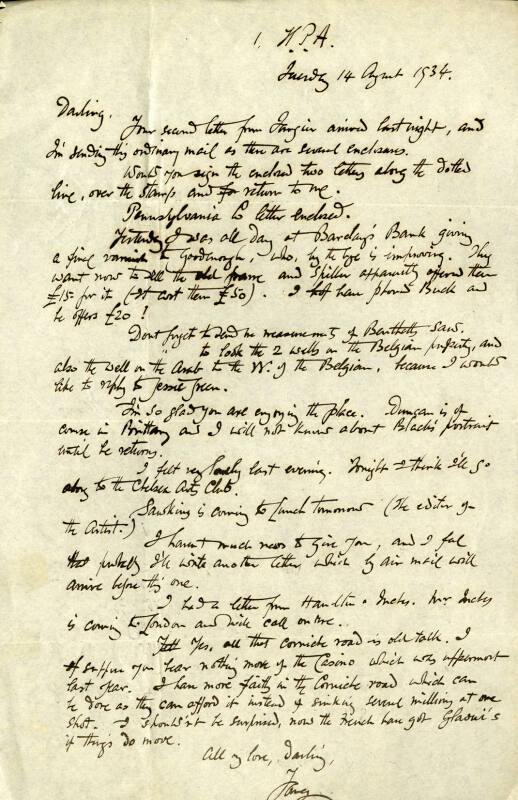 1. W.P.A.
Tuesday 14 August 1934.
Darling,
Your second letter from Tangier arrived last night, and
I'm sending this ordinary mail as there are several enclosures.
Would you sign the enclosed two letters along the dotted
line, over the stamps and return to me.
Pennsylvania Co letter enclosed.
Yesterday I was all day at Barclay's Bank giving
a final varnish to Goodenough, who, by the bye is improving. They
want now to sell the old frame and Spiller apparently offered them
£15 for it (It cost them £50). I have phoned Buck and
he offers £20!
Dont forget to send me measurements of saw.
to look the 2 wells on the Belgian property, and
also the well on the Arab to the W. of the Belgian, because I would
like to reply to Jessie Green.
I'm so glad you are enjoying the place. Duncan is of
course in Brittany and I will not know about Black's portrait
until he returns.
I felt very lonely last evening. Tonight I think I'll go
along to the Chelsea Arts Club.
is coming to lunch tomorrow (The editor of
the Artist.)
I havnt much news to give you, and I feel
probably I'll write another letter, which by air mail will
arrive before this one.
I had a letter from Hamilton Inches. Mr Inches
is coming to London and will call on me.
Yes, all that Corniche road is old talk. I
suppose you hear nothing more of the Casino which was uppermost
last year. I have more faith in the Corniche road which can
be done as they can afford it instead of sinking several millions at one
shot. I shouldn't be surprised, now the French have got
if things do move.
All my love, Darling,